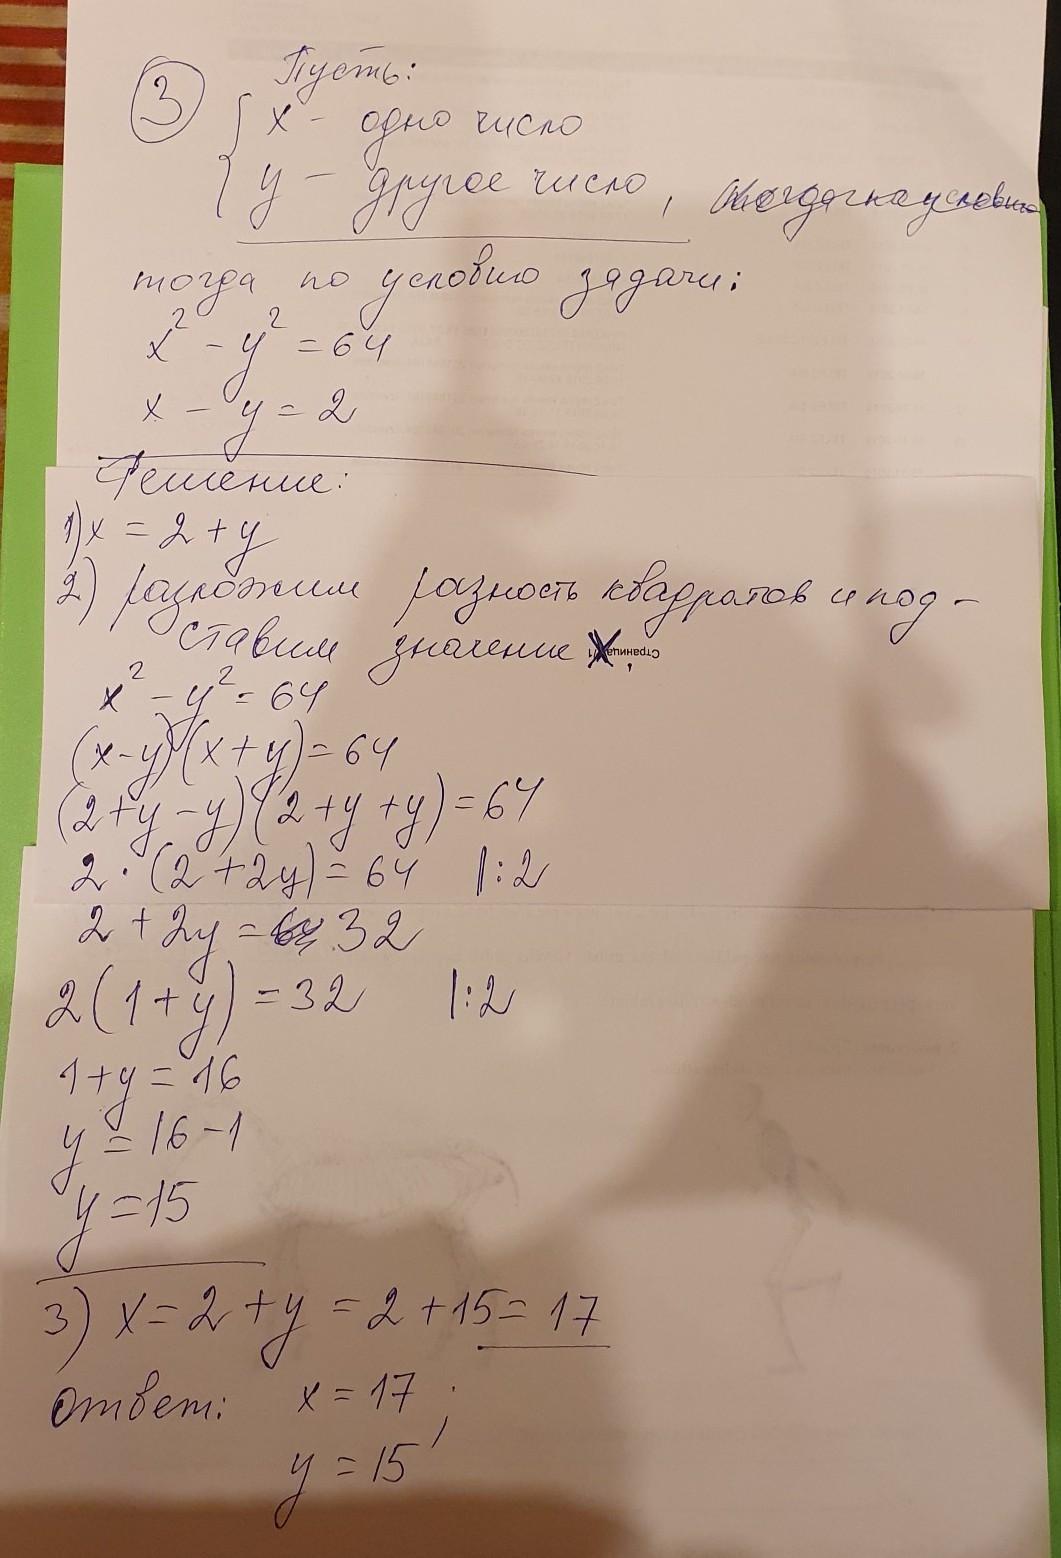 3 Пусть:
x - одно число
y - другое число,
тогда по условию задачи:
x² - y² = 64
x - y = 2
Решение:
1) x = 2 + y
2) разложим разность квадратов и под-
ставим значение X Страница
x² - y² = 64
(x-y)(x+y) = 64
(2+y-y)(2+y+y) = 64
2·(2+2y) = 64 |:2
2 + 2y = 32
2(1+y) = 32 |:2
1+y = 16
y = 16-1
y = 15
3) x = 2 + y = 2 + 15 = 17
ответ: x = 17;
y = 15